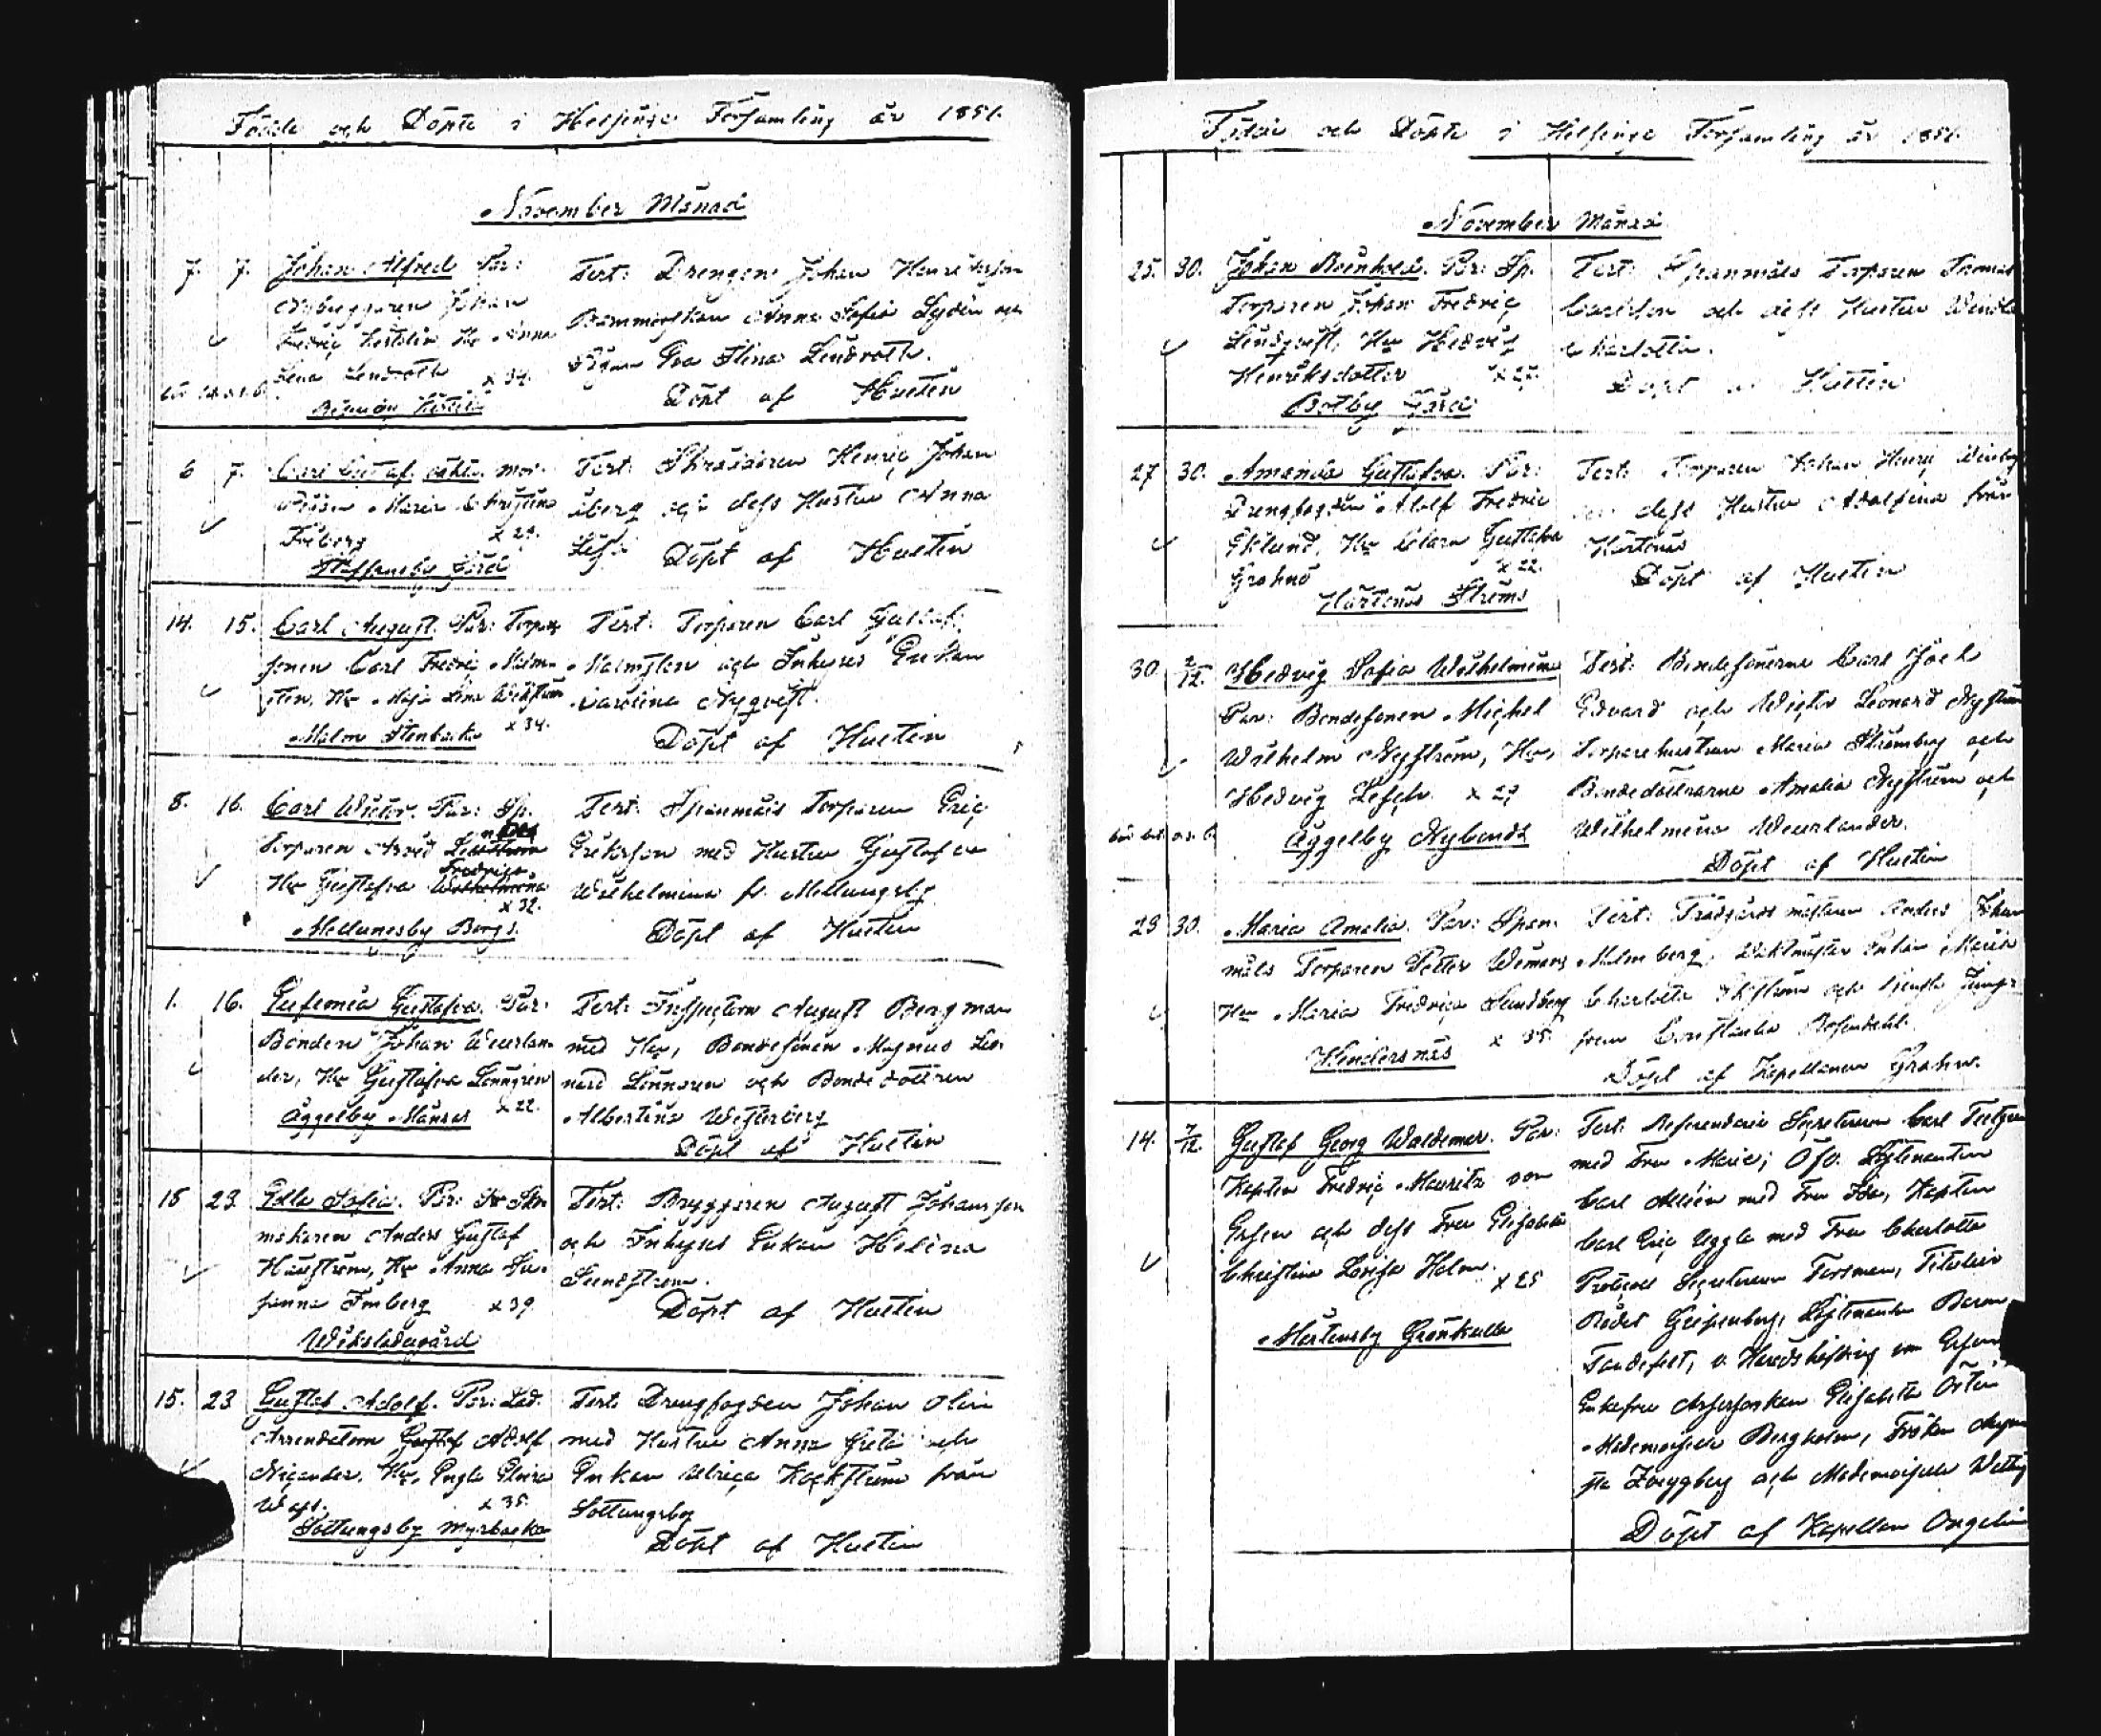 Födde och Döpte i Helsinge Församling år 1851.
November Månad
7. 7. Johan Alfred. Par:
Nybyggaren Johan
Fredric Hertolin, Hu Anna
Lena Lindroth x 34.
Test: Drengen Johan Henricsson
Barnmorskan Anna Sofia Lydén och
Pigan Eva Stina Lindroth.
Döpt af Huetin
6 7. Carl Gustaf. oäkta. mor:
Pigan Maria Christina
Friberg x 29.
Staffansby Gård
Test: Skräddaren Henric Johan
åberg och dess Hustru Anna
Lisa Döpt af Huetin
14. 15. Carl August. Par: Torpare
sonen Carl Fredric Malm-
sten, Hu Maja Lena Wikström
Malm Stenbacka x 34.
Test: Torparen Carl Gustaf
Malmsten och Inhyses Enkan
Carolina Nyqvist.
Döpt af Huetin
8. 16. Carl Victor. Par: Sp.
Torparen Arvid
Hu Gustafva Fredrica Wilhelmina
x 32.
Mellungsby Bergs.
Test: Spanmåls Torparen Eric
Ericksson med Hustru Gustafva
Wilhelmina fr. Mellungsby
Döpt af Huetin
1. 16. Eufemia Gustafva. Par:
Bonden Johan Weurlan-
der, Hu Gustafva Lönngren
Åggelby Månsas x 22.
Test: Inspectorn August Bergman
med Hu, Bondesonen Magnus Leo-
nard Lönngren och Bondedottren
Albertina Westerberg
Döpt af Huetin
15 23. Edla Sofia. Par: Sko-
makaren Anders Gustaf
Hagström, Hu Anna Su-
sanna Imberg x 39.
Wiksladugård
Test: Bryggaren August Johansson
och Inhyses Enkan Helena
Sundström.
Döpt af Huetin
15. 23 Gustaf Adolf. Par: Lad.
Arrendatorn Gustaf Adolf
Nicander, Hu, Engla Elvira
x 35.
Sottungsby Myrbacka
Test: Drengfogden Johan Olin
med Hustru Anna Greta och
Enkan Ulrica Hackström från
Sottungsby
Döpt af Huetin
Födde och Döpte i Helsinge Församling år 1851.
November Månad
25. 30. Johan Reinhold. Par: Sp.
Torparen Johan Fredric
Lindqvist, Hu Hedvig
Henriksdotter x 27.
Botby Gård
Test: Spanmåls Torparen Thomas
Carlsson och dess Hustru Wendla
Charlotta.
Döpt af Huetin
27 30. Amanda Gustafva. Par:
Drengfogden Adolf Fredric
Eklund, Hu Clara Gustafva
Grahnö x 22.
Hartonäs Ströms
Test: Torparen Johan Henric
och dess Hustru Adolfina från
Hartonäs
Döpt af Huetin
30. 2/12. Hedvig Sofia Wilhelmina
Par: Bondesonen Michel
Wilhelm Nyström, Hu,
Hedvig Lesch. x 27
Åggelby Nybondas
Test: Bondesönerna Carl Joel
Edvard och Victor Leonard Nyström
Torparehustrun Maria Strömberg och
Bondedöttrarna Amalia Nyström och
Wilhelmina Weurlander.
Döpt af Huetin
29 30. Maria Amalia. Par: Span-
måls Torparen Petter Wiman,
Hu Maria Fredrica Sundberg
x 35.
Hindersnäs
Test: Trädgårdsmästaren Anders Johan
Malmberg, Waktmäster Enkan Maria
Charlotta Ekström och Jungf-
frun Constantia Rosendahl.
Döpt af Kapellanen Grahn.
14. 7/12. Gustaf Georg Waldemar. Par:
Kapten Fredric Mauritz von
Essen och dess Fru Elisabeth
Christina Lovisa Holm.
x 25
Mårtensby Grönkulla
Test: Referendarie Secreteraren Carl
med Fru Marie; Öfv. Löjtenanten
Carl Aléen med Fru Ida, Kapten
Carl Eric Uggla med Fru Charlotta
Protocoll Secreteraren Forsman, Titulair
Rådet Gripenberg, Löjtenanten Baron
Tandefelt, v. Häradshöfding von Essen
Enkefru Assessorskan Elisabeth Östen
Mademoiselle Bergholm, Fröken
Zweygberg och Mademoiselle
Döpt af Kapellan Ongelin